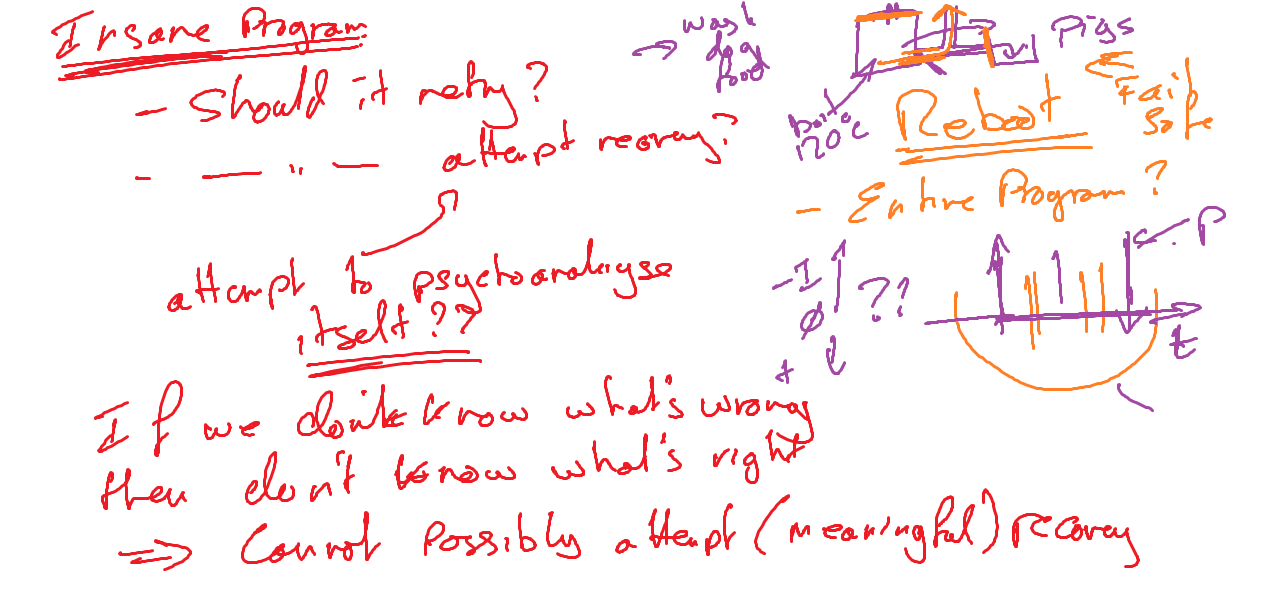 Insane Program
- Should it retry?
- — " — attempt recovery?
attempt to psychoanalyse
itself??
If we don't know what's wrong
then don't know what's right
⇒ Cannot possibly attempt (meaningful) recovery
→ wash
dog
food
Pigs
120°C
Reboot
Fail
Safe
- Entire Program?
-I
Ø
+
??
P
t